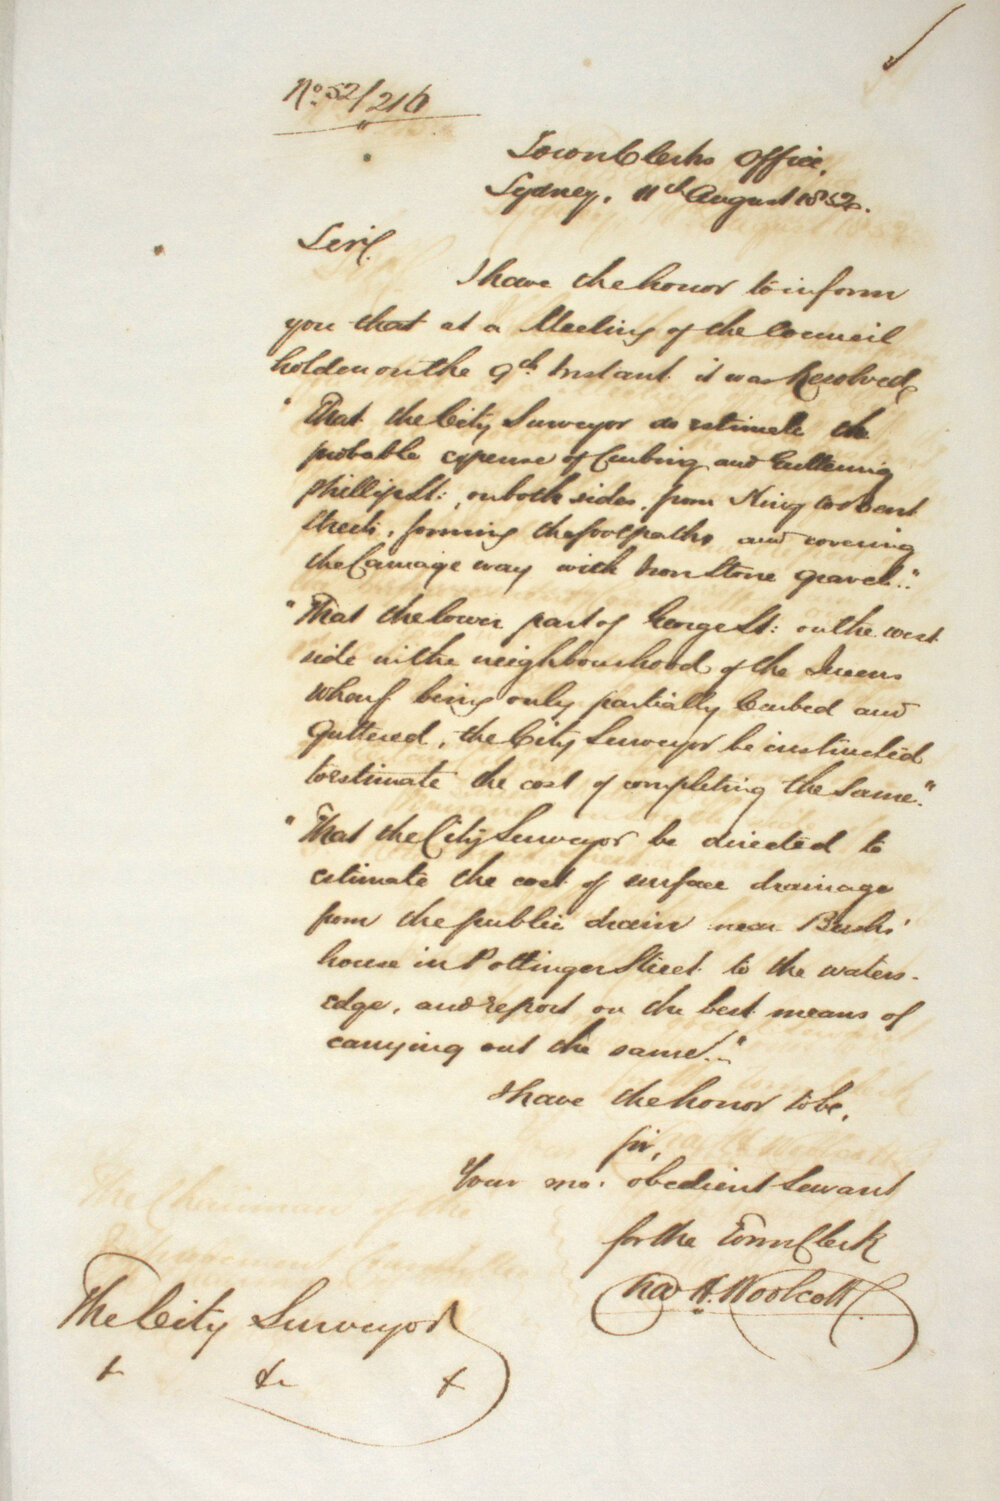 No. 52/216
Town Clerks Office,
Sydney, 11th August 1852.
Sir,
I have the honor to inform
you that at a Meeting of the Council
holden on the 9th Instant it was Resolved,
"That the City Surveyor do estimate the
probable expense of Curbing and Guttering
Phillip St:, on both sides, from King to Bent
Streets, forming the footpaths and covering
the Carriage way with Iron Stone gravel.."
"That the lower part of George St: on the west
side in the neighbourhood of the Queens
Wharf being only partially Curbed and
Guttered, the City Surveyor be instructed
to estimate the cost of completing the same."
"That the City Surveyor be directed to
estimate the cost of surface drainage
from the public drain near Bushs'
house in Pottinger Street to the waters-
edge, and report on the best means of
carrying out the same."
I have the honor to be,
Sir,
Your mo. obedient Servant
for the Town Clerk
Chas H. Woolcott
The City Surveyor
&c &c &c